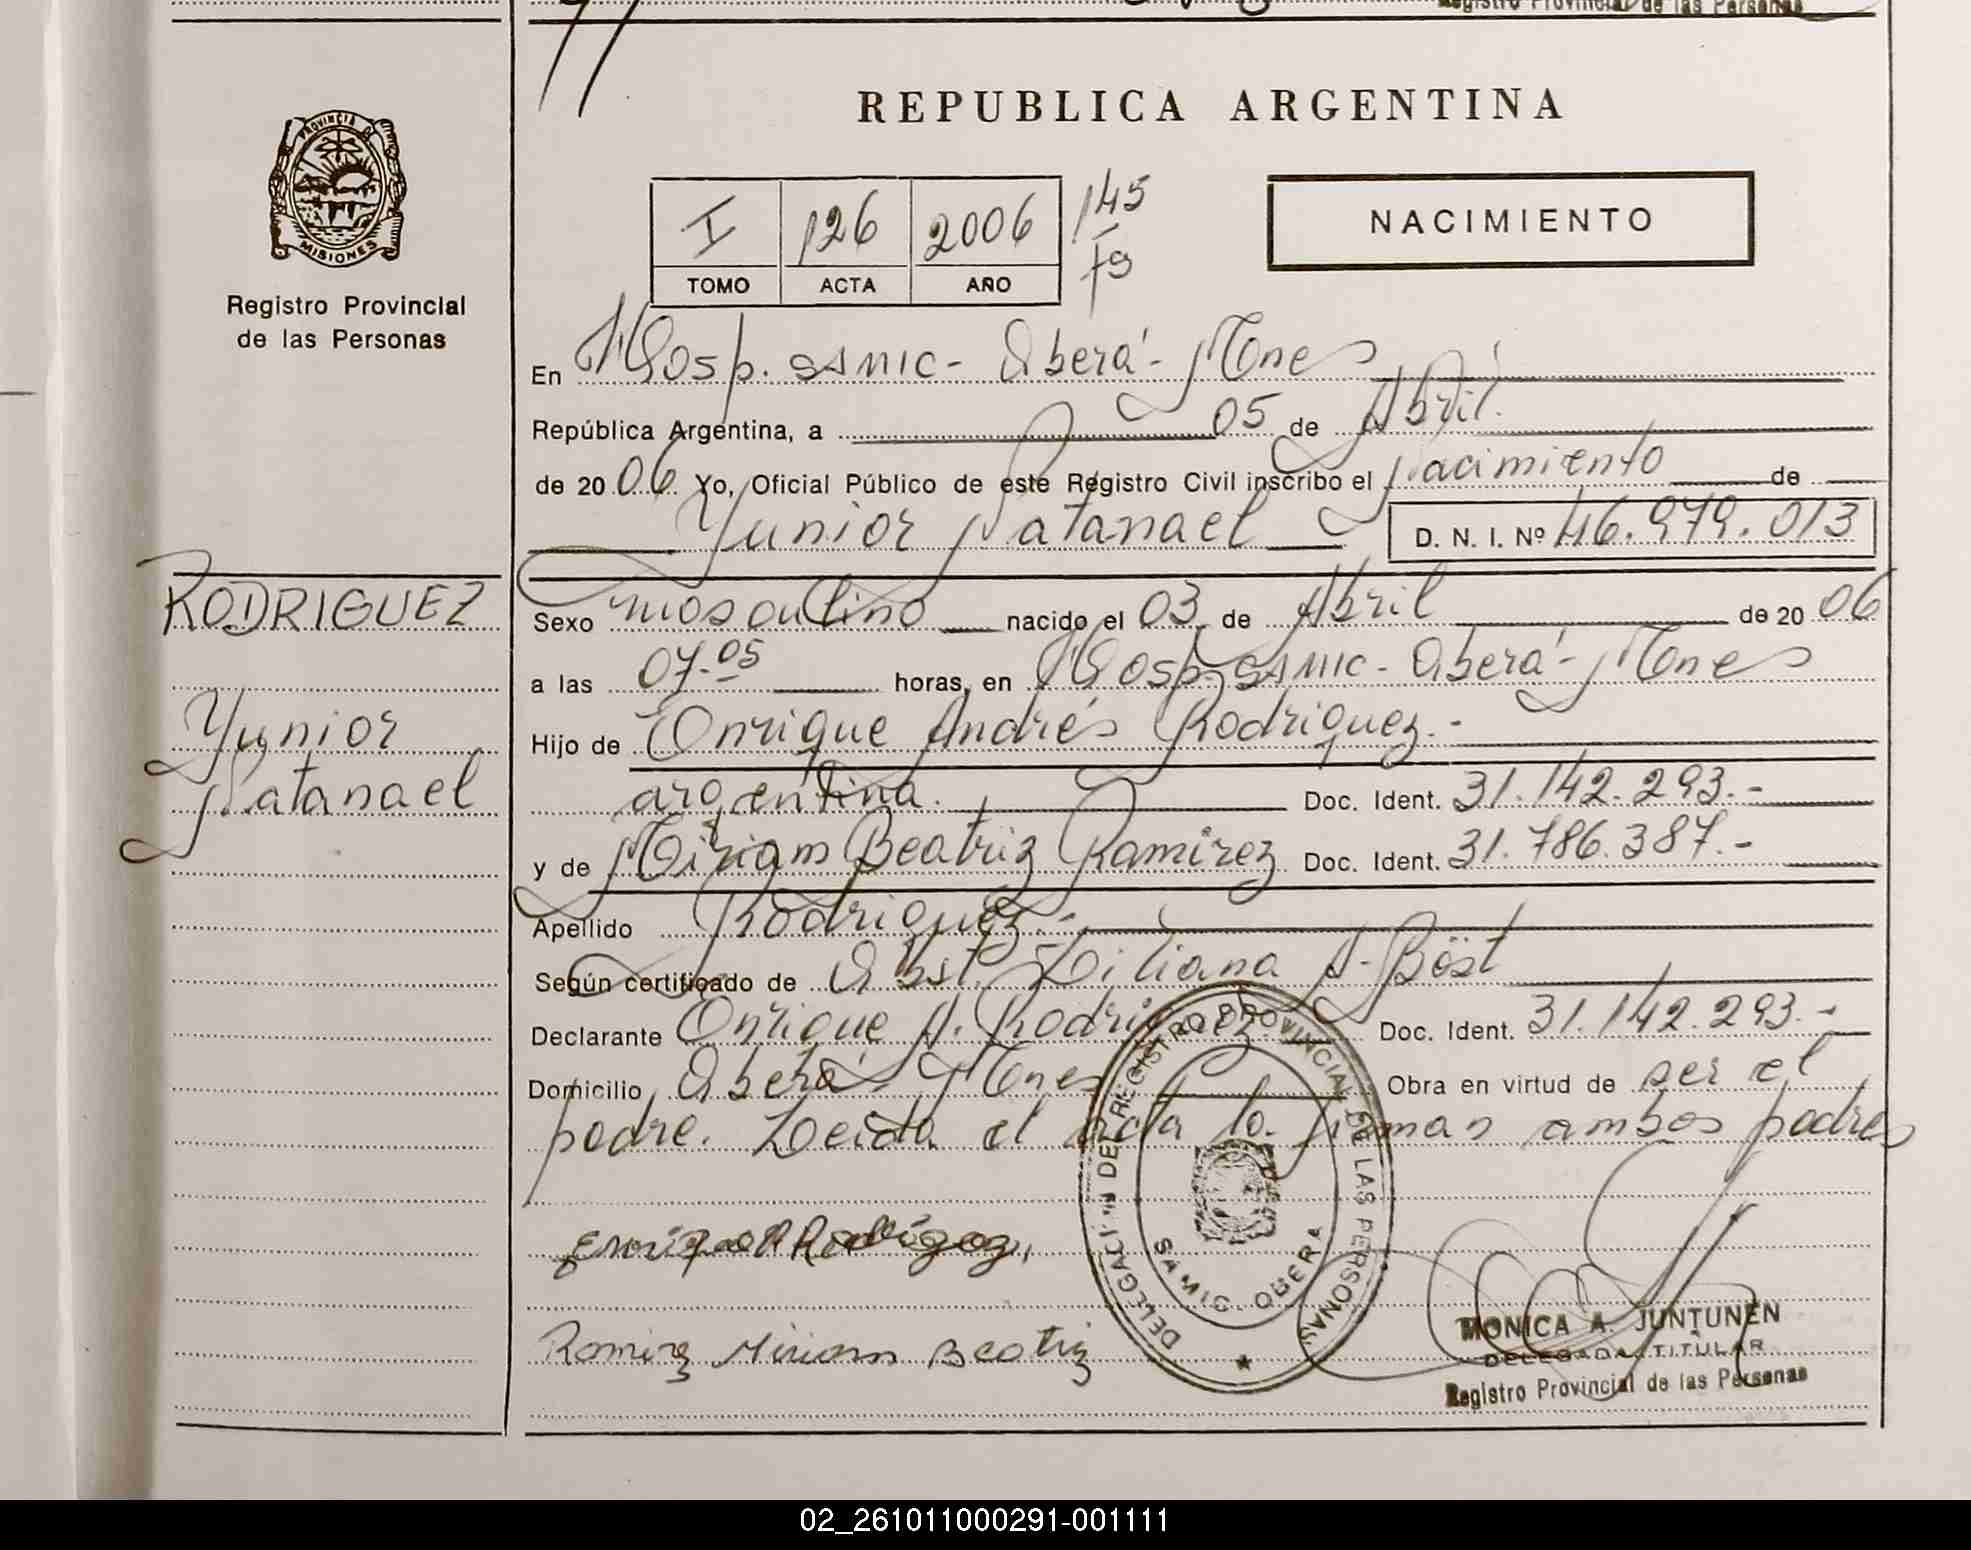 Registro Provincial de las Personas
PROVINCIA D
MISIONES
Registro Provincial
de las Personas
RODRIGUEZ
Yunior
Natanael
REPUBLICA ARGENTINA
I 126 2006 145
TOMO ACTA AÑO fs
NACIMIENTO
En Hosp. SAMIC - Oberá - Mnes
República Argentina, a 05 de Abril.
de 2006 Yo, Oficial Público de este Registro Civil inscribo el nacimiento de
Yunior Natanael D. N. I. Nº 46.979.013
Sexo masculino nacido el 03 de Abril de 2006
a las 07-05 horas, en Hosp. SAMIC - Oberá - Mnes
Hijo de Enrique Andrés Rodriguez.-
argentina. Doc. Ident. 31.142.293.-
y de Miriam Beatriz Ramirez Doc. Ident. 31.786.387.-
Apellido Rodriguez.-
Según certificado de Obst. Liliana A. Böst
Declarante Enrique A. Rodriguez Doc. Ident. 31.142.293.-
Domicilio Oberá - Mnes Obra en virtud de ser el
padre. Leida el acta la firman ambos padres
DELEGACION DEL REGISTRO PROVINCIAL DE LAS PERSONAS
SAMIC - OBERA
Enrique A Rodrigez,
Ramirez Miriam Beatriz
MONICA A. JUNTUNEN
DELEGADA TITULAR
Registro Provincial de las Personas
02_261011000291-001111